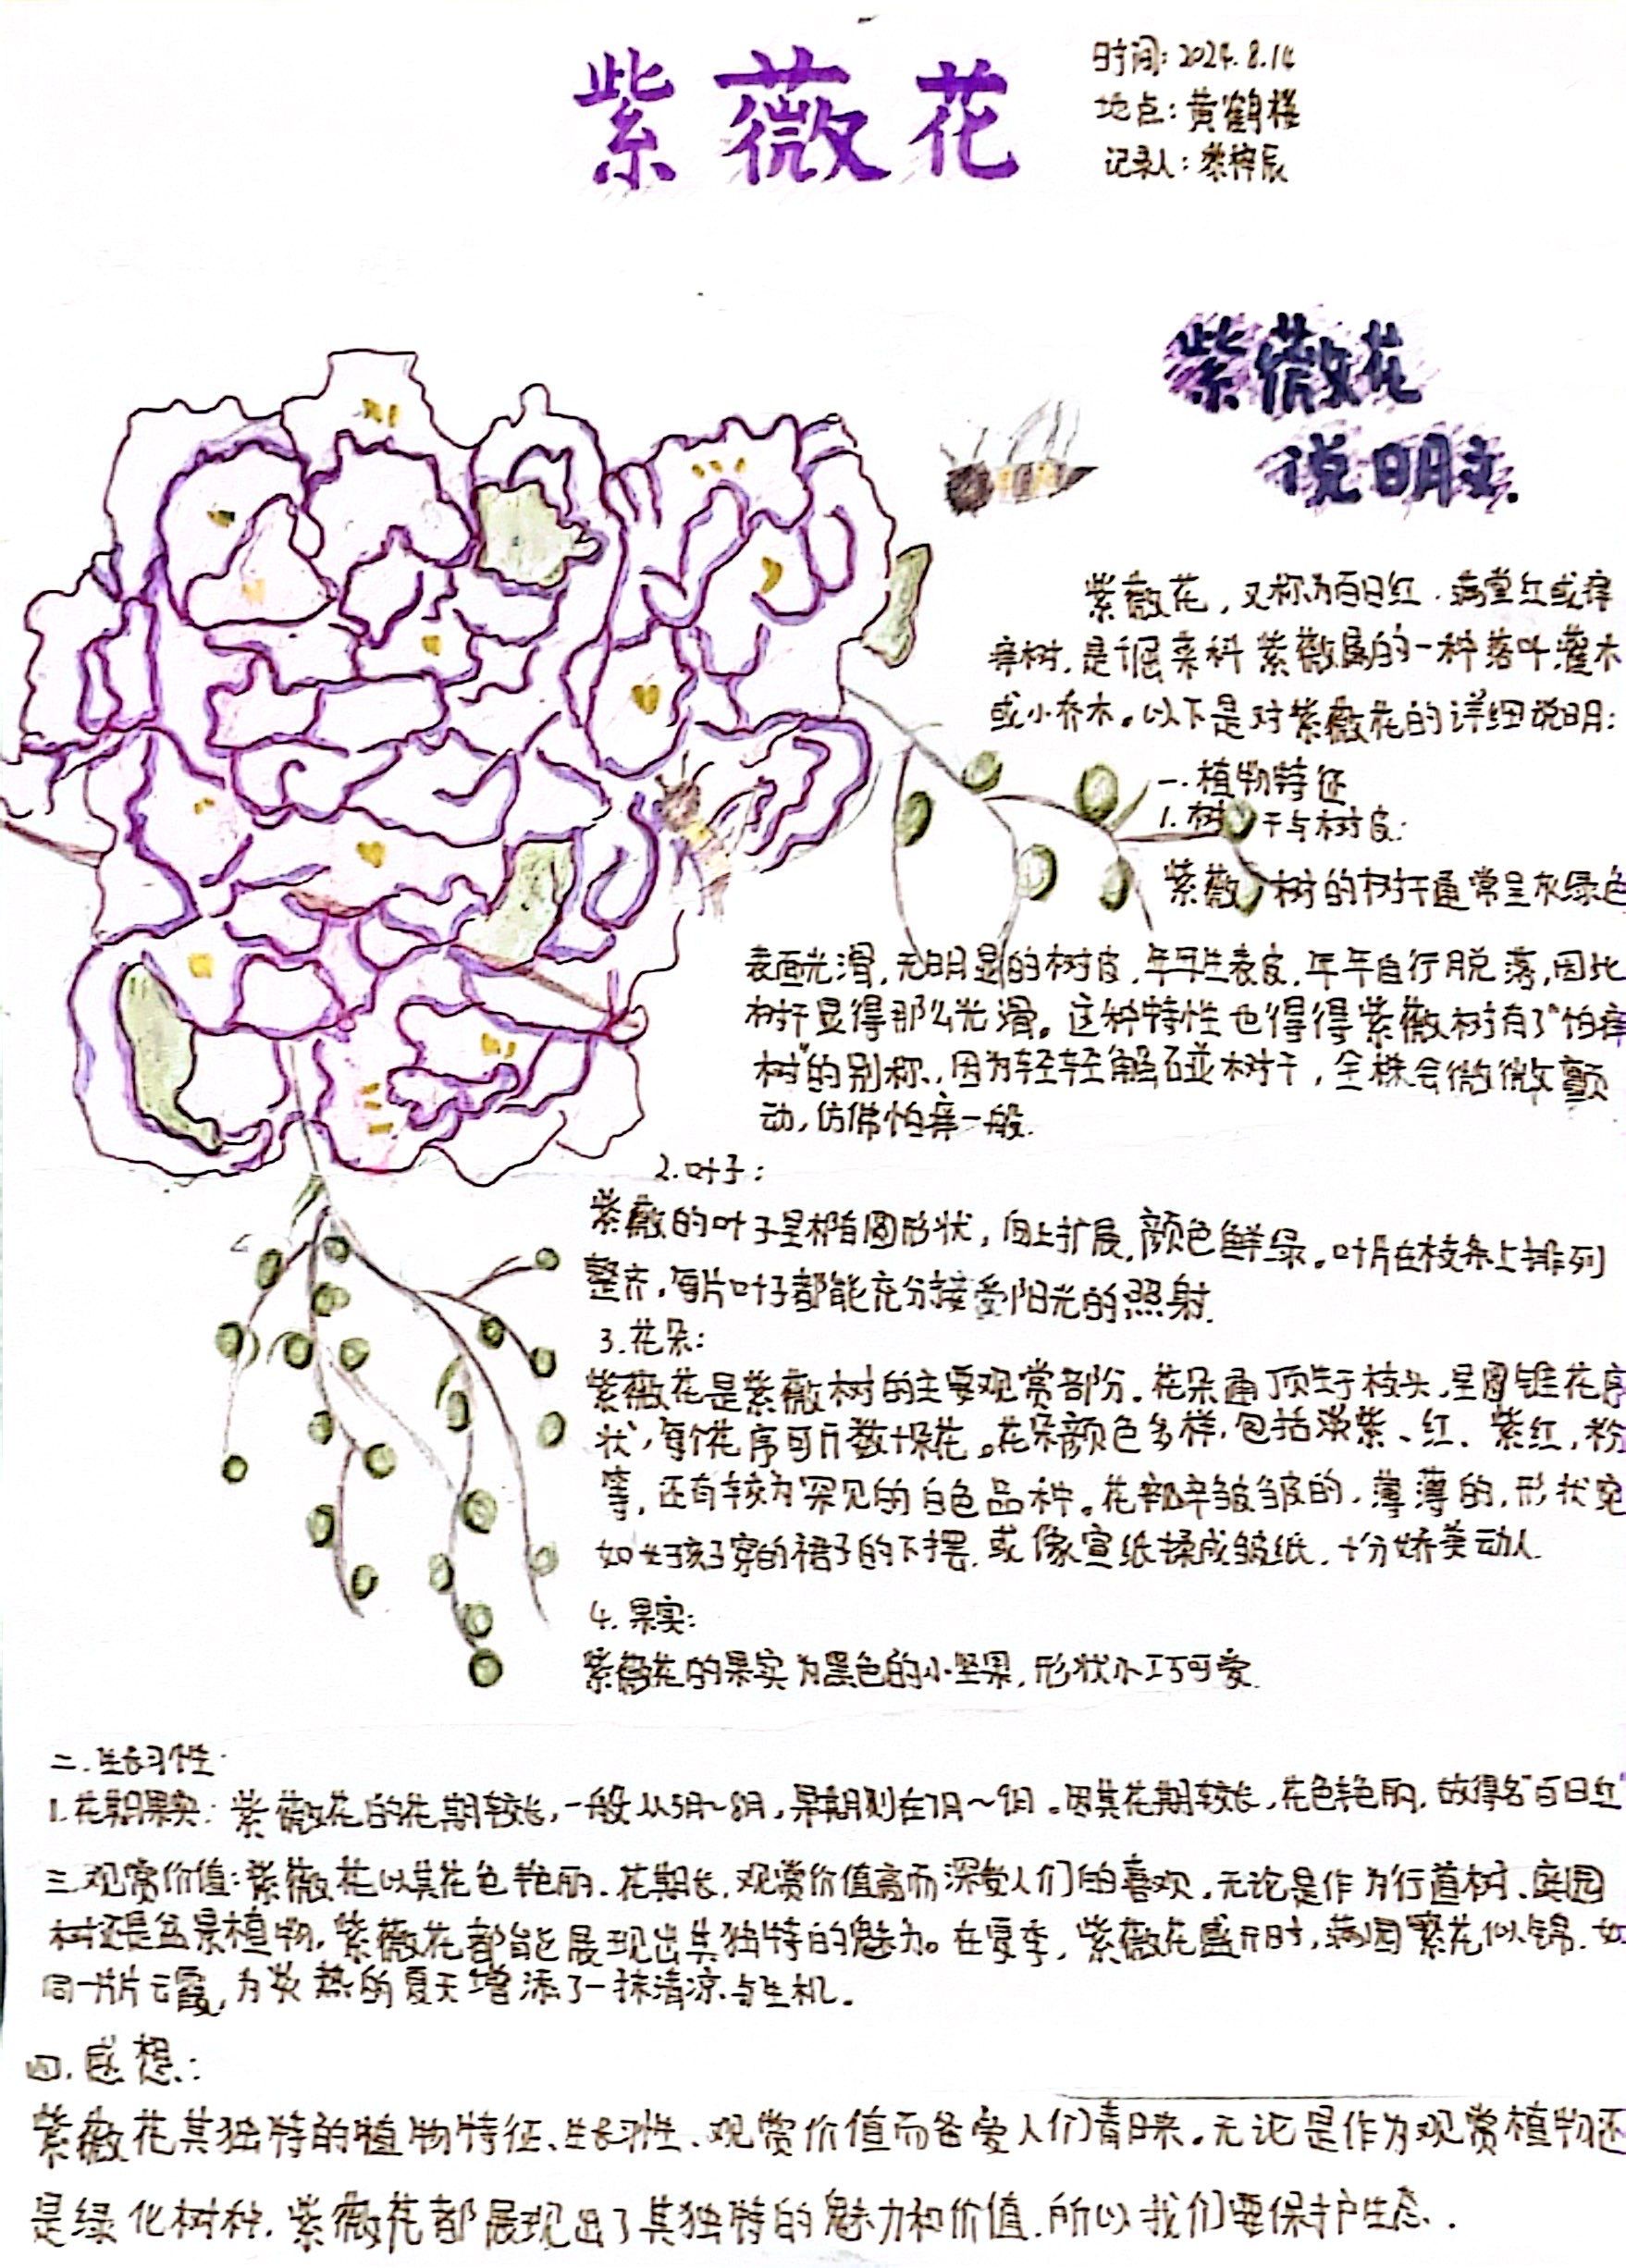 紫薇花
时间: 2024.8.14
地点: 黄鹤楼
记录人: 黎梓辰
紫薇花
说明文.
紫薇花, 又称为百日红. 满堂红或痒
痒树. 是千屈菜科紫薇属的一种落叶灌木
或小乔木。以下是对紫薇花的详细说明:
一. 植物特征
1. 树干与树皮:
紫薇树的树干通常呈灰绿色
表面光滑, 无明显的树皮. 年年生表皮. 年年自行脱落, 因此
树干显得那么光滑。这种特性也得得紫薇树有了“怕痒
树”的别称., 因为轻轻触碰树干, 全株会微微颤
动, 仿佛怕痒一般.
2. 叶子:
紫薇的叶子呈椭圆形状, 向上扩展, 颜色鲜绿。叶片在枝条上排列
整齐, 每片叶子都能充分接受阳光的照射.
3. 花朵:
紫薇花是紫薇树的主要观赏部分. 花朵通顶生于枝头, 呈圆锥花序
状, 每个花序可开数十朵花。花朵颜色多样, 包括淡紫、红、紫红, 粉
等, 还有较为罕见的白色品种。花瓣皱皱的, 薄薄的, 形状宛
如女孩子穿的裙子的下摆. 或像宣纸揉成皱纸, 十分娇美动人.
4. 果实:
紫薇花的果实为黑色的小坚果, 形状小巧可爱.
二. 生长习性:
1. 花期果实: 紫薇花的花期较长, 一般从5月~8月, 早期则在7月~9月。因其花期较长, 花色艳丽, 故得名“百日红”
三. 观赏价值: 紫薇花以其花色艳丽. 花期长, 观赏价值高而深受人们的喜欢. 无论是作为行道树、庭园
树还是盆景植物, 紫薇花都能展现出其独特的魅力。在夏季, 紫薇花盛开时, 满园繁花似锦. 如
同一片片云霞, 为炎热的夏天增添了一抹清凉与生机。
四. 感想:
紫薇花其独特的植物特征、生长习性、观赏价值而备受人们青睐。无论是作为观赏植物还
是绿化树种, 紫薇花都展现出了其独特的魅力和价值. 所以我们要保护生态.